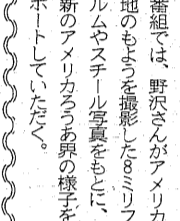 番組では、野沢さんがアメリカ
地のもようを撮影した8ミリフ
ルムやスチール写真をもとに、
新のアメリカろうあ界の様子を
ポートしていただく。